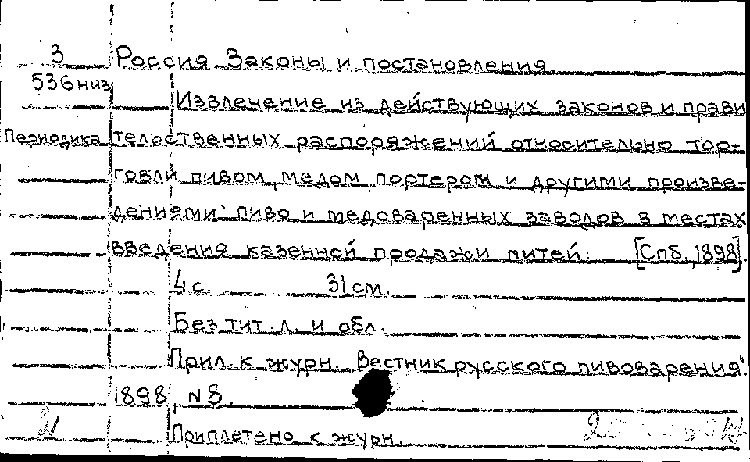 3 Россия Законы и постановления
536 низ
Извлечение из действующих законов и прави
Периодика тельственных распоряжений относительно тор-
говли пивом, медом портером и другими произве-
дениями пиво и медоваренных заводов в местах
введения казенной продажи питей. [Спб., 1898].
4 с. 31 см.
Без тит. л. и обл.
Прил. к журн. Вестник русского пивоварения".
1898 N 3.
Приплетено к журн.